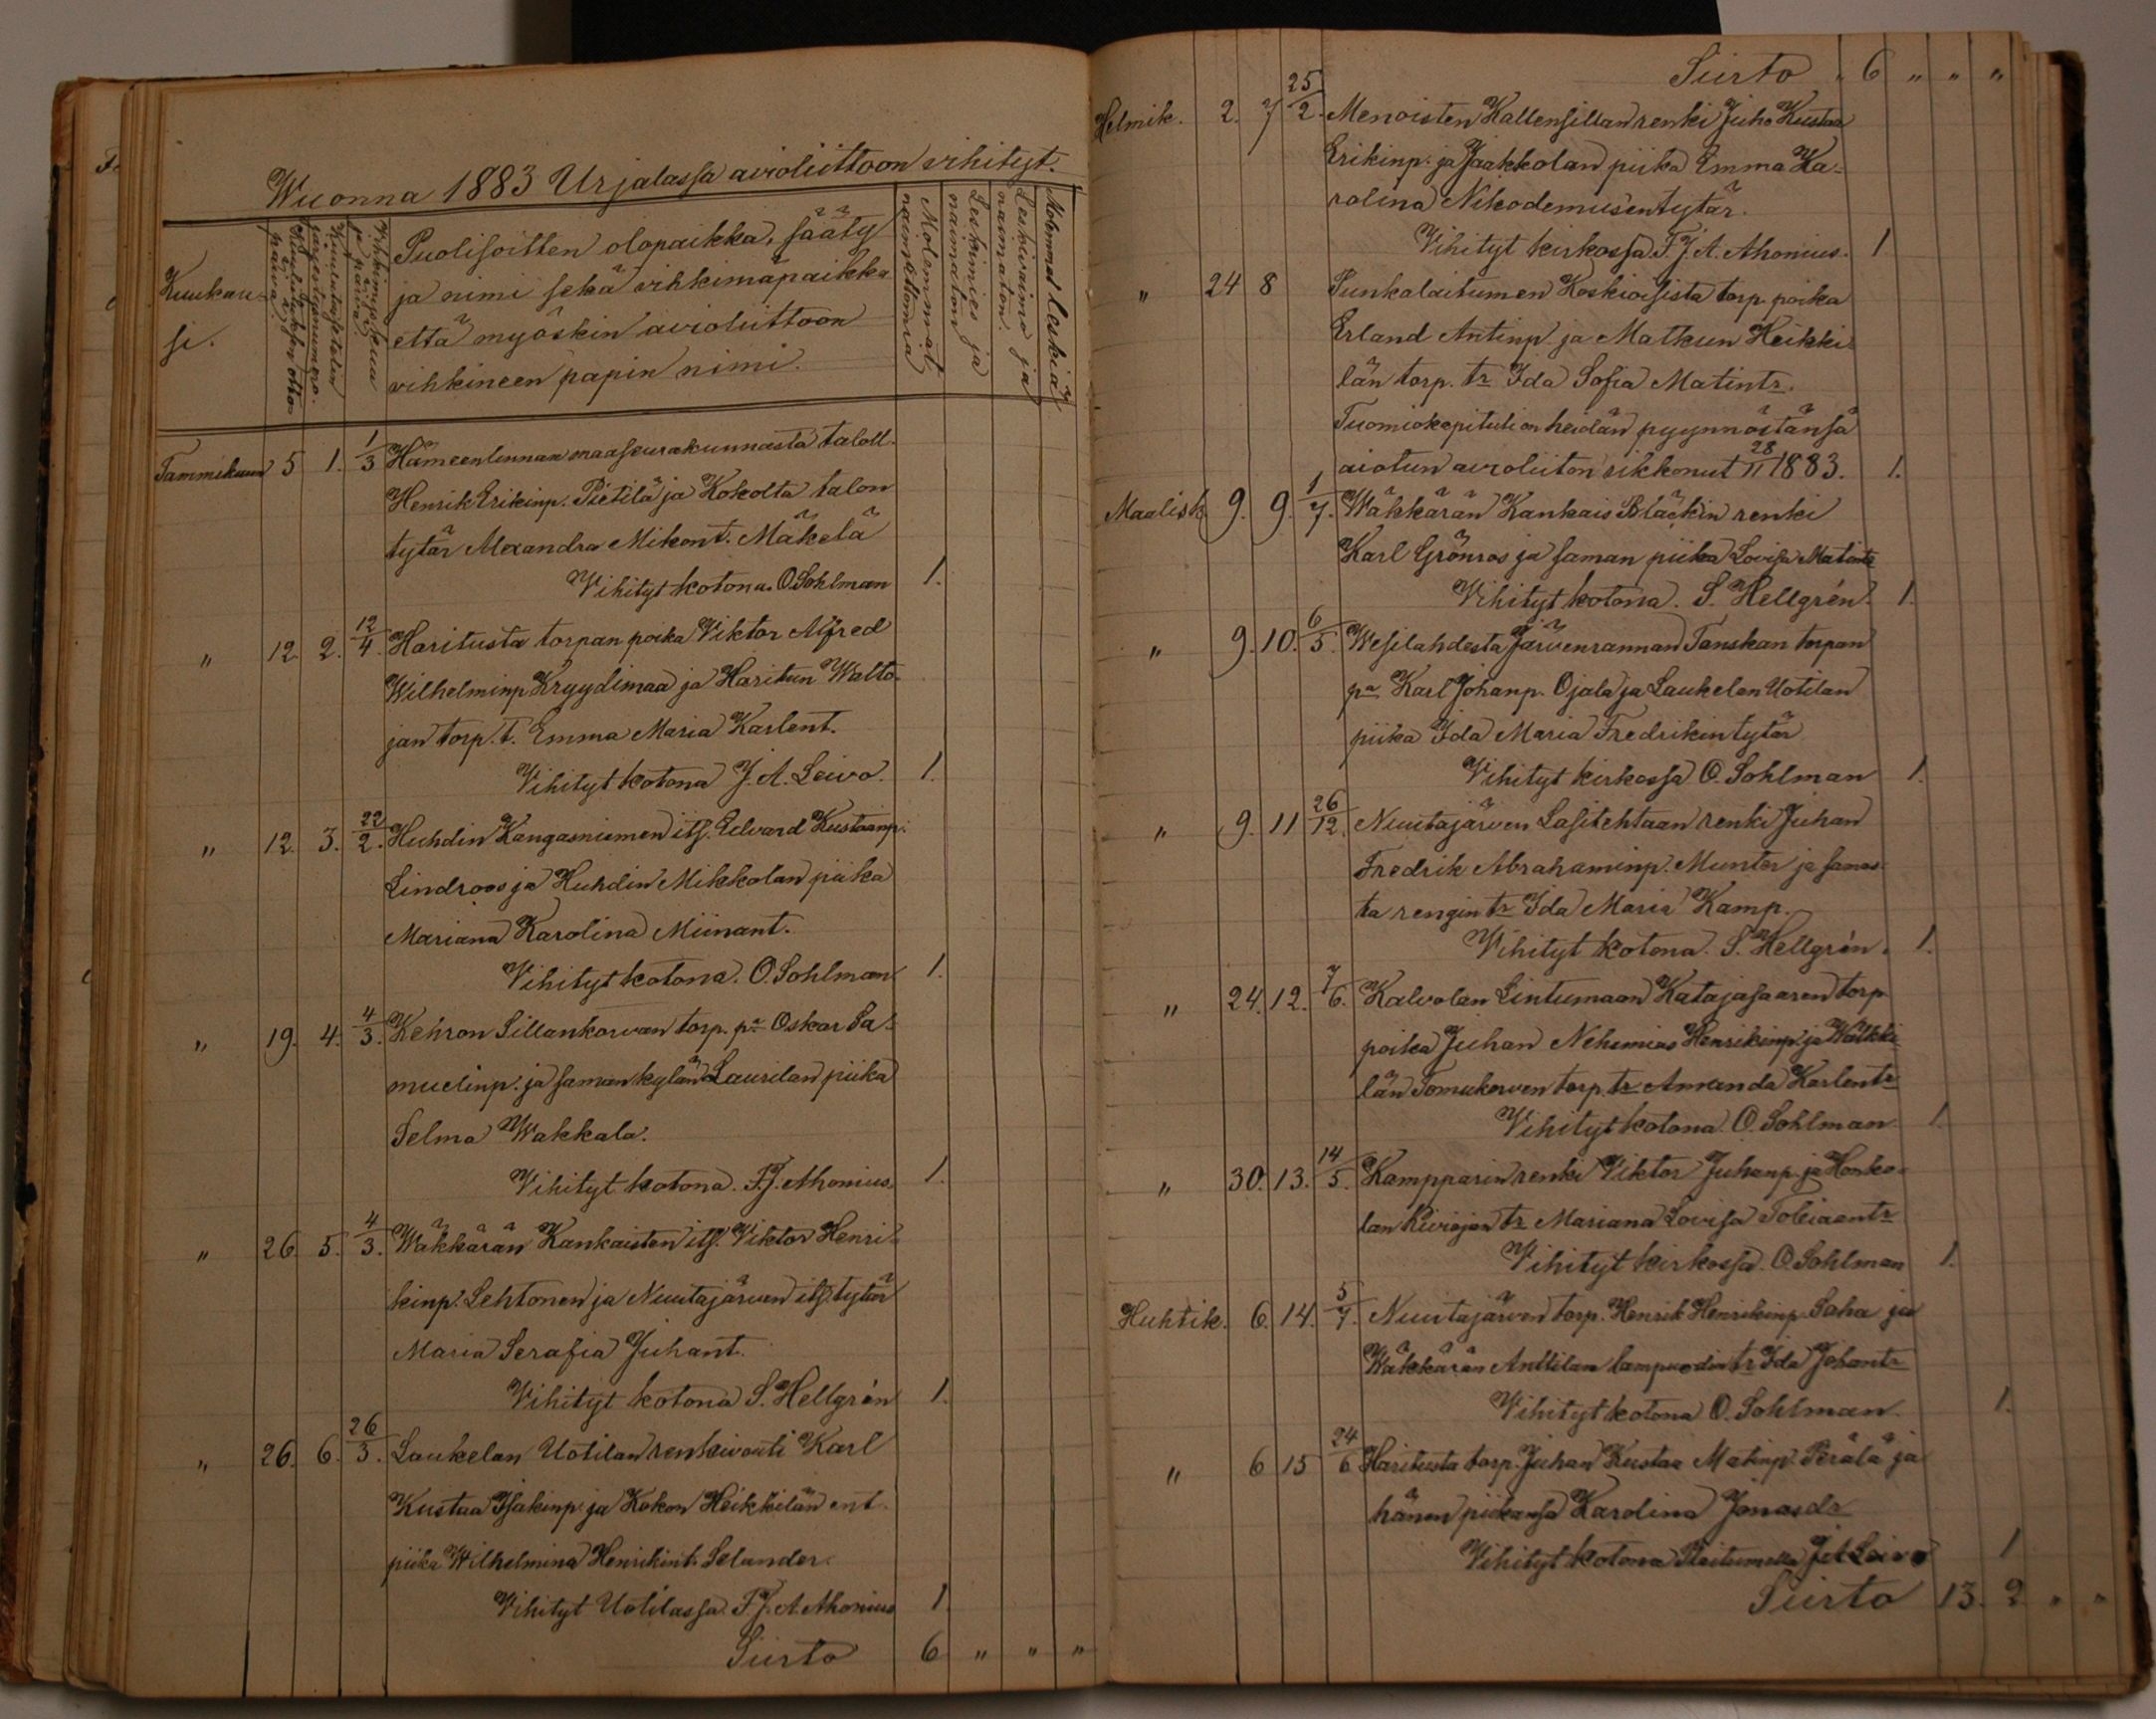 Wuonna 1883 Urjalassa avioliittoon vihityt.
Kuukau-
si.
Kuulutuksen otto
päivä.
Kuulutusluettelon
järjestysnumero.
Vihkimyskuu
ja päivä
Puolisoitten olopaikka, sääty
ja nimi sekä vihkimäpaikka
että myöskin avioliittoon
vihkineen papin nimi.
Molemmat
naimattomia
Leskimies ja
naimaton
Leskivaimo ja
naimaton.
Molemmat leskiä
Tammikuun 5 1. 1/3 Hämeenlinnan maaseurakunnasta taloll.
Henrik Erikinp. Pietilä ja Kokolta talon
tytär Alexandra Mikont. Mäkelä
Vihityt kotona. O. Sohlman 1.
" 12. 2. 12/4. Haritusta torpan poika Viktor Alfred
Wilhelminp Kryydimaa ja Haritun Walto-
jan torp. t. Emma Maria Karlent.
Vihityt kotona J. A. Leivo. 1.
" 12. 3. 22/2. Huhdin Kangasniemen its. Edvard Kustaanp.
Lindroos ja Huhdin Mikkolan piika
Mariana Karolina Miinant.
Vihityt kotona. O. Sohlman 1.
" 19. 4. 4/3. Kehron Sillankorvan torp. pa Oskar Sa-
muelinp. ja saman kylän Laurilan piika
Selma Wakkala.
Vihityt kotona. F. J. Ahonius. 1.
" 26. 5. 4/3. Wäkkärän Kankaisten its. Viktor Henri-
kinp. Lehtonen ja Nuutajärven its. tytär
Maria Serafia Juhant.
Vihityt kotona S. Hellgrén 1.
" 26. 6. 26/3. Laukelan Uotilan renkivouti Karl
Kustaa Isakinp. ja Kokon Heikkilän ent.
piika Wilhelmina Henrikint. Selander.
Vihityt Uotilassa. F. J. A. Ahonius 1
Siirto 6 " " "
Siirto " 6 " " "
Helmik. 2. 7 25/2. Menoisten Kallensillan renki Juho Kustaa
Erikinp. ja Jaakkolan piika Emma Ka-
rolina Nikodemusentytär.
Vihityt kirkossa F. J. A. Ahonius. 1
" 24 8 Punkalaitumen Koskioisista torp. poika
Erland Antinp. ja Matkun Heikki-
län torp. tr Ida Sofia Matintr.
Tuomiokapituli on heidän pyynnöstänsä
aiotun avioliiton rikkonut 28/11 1883. 1.
Maalisk. 9. 9. 1/7. Wäkkärän Kankais Bläckin renki
Karl Grönros ja saman piika Lovisa Matintr
Vihityt kotona. S. Hellgrén. 1.
" 9. 10. 6/5. Wesilahdesta Järvenrannan Tanskan torpan
pa Karl Johanp. Ojala ja Laukelan Uotilan
piika Ida Maria Fredrikintytär
Vihityt kirkossa O. Sohlman 1.
" 9. 11 26/12. Nuutajärven Lasitehtaan renki Juhan
Fredrik Abrahaminp. Munter ja samas-
ta rengin tr Ida Maria Kamp.
Vihityt kotona. S. Hellgrén. 1.
" 24. 12. 7/6. Kalvolan Lintumaan Katajasaaren torp.
poika Juhan Nehemias Henrikinp. ja Wälkki-
län torp. tr Amanda Karlentr
Vihityt kotona. O. Sohlman 1.
" 30. 13. 14/5. Kampparin renki Viktor Juhanp. ja Honko-
lan Kiviojan tr Mariana Lovisa Tobiaentr
Vihityt kirkossa. O. Sohlman 1.
Huhtik. 6. 14. 5/7. Nuutajärven torp. Henrik Henrikinp. Saha ja
Wäkkärän Anttilan lampuodin tr Ida Johantr
Vihityt kotona O. Sohlman. 1.
" 6 15 24/6 Haritusta torp. Juhan Kustaa Matinp. Perälä ja
hänen piikansa Karolina Jonasdr
Vihityt kotona J. A. Leivo 1
Siirto 13. 2 " "